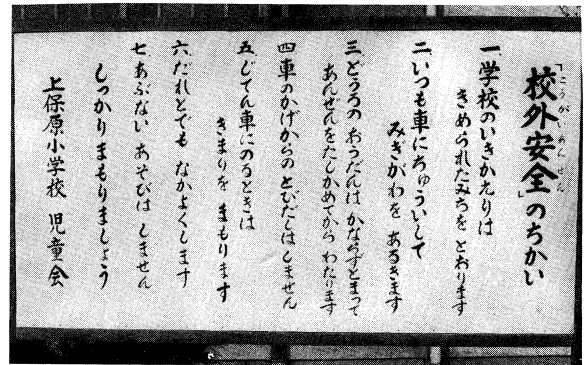 「校外安全」のちかい
こうがいあんぜん
一 学校のいきかえりは
きめられたみちを とおります
二 いつも車にちゅういして
みぎがわを あるきます
三 どうろの おうだんは かならずとまって
あんぜんをたしかめてから わたります
四 車のかげからの とびだしは しません
五 じてん車にのるときは
きまりを まもります
六 だれとでも なかよくします
七 あぶない あそびは しません
しっかりまもりましょう
上保原小学校 児童会